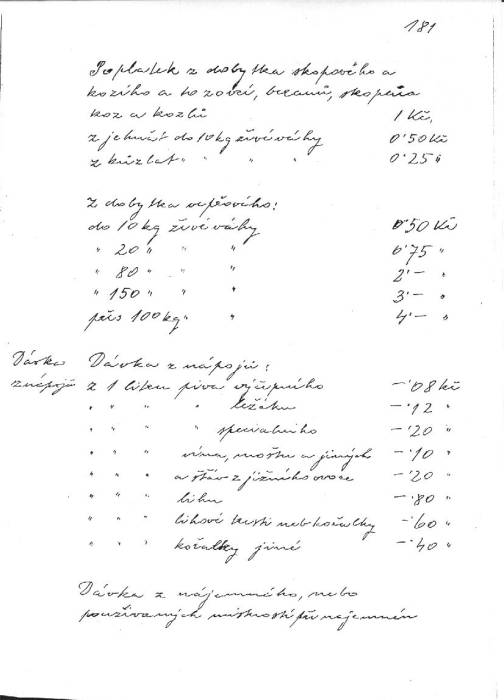 181
Poplatek z dobytka skopového a
kozího a to z ovcí, beranů, skopců
koz a kozlů 1 Kč,
z jehňat do 10 kg živé váhy 0·50 Kč
z kůzlat " " " " 0·25 "
Z dobytka vepřového:
do 10 kg živé váhy 0·50 Kč
" 20 " " " 0·75 "
" 80 " " " 2·— "
" 150 " " " 3·— "
přes 100 kg " " 4·— "
Dávka Dávka z nápojů:
z nápojů z 1 litru piva výčepního —·08 Kč
" " " " ležáku —·12 "
" " " " specialního —·20 "
" " " vína, moštu a jiných —·10 "
" " " a šťáv z jižního ovoce —·20 "
" " " lihu —·80 "
" " " lihové tresti neb kořalky —·60 "
" " " kořalky jiné —·40 "
Dávka z nájemného, nebo
používaných místností při nájemném